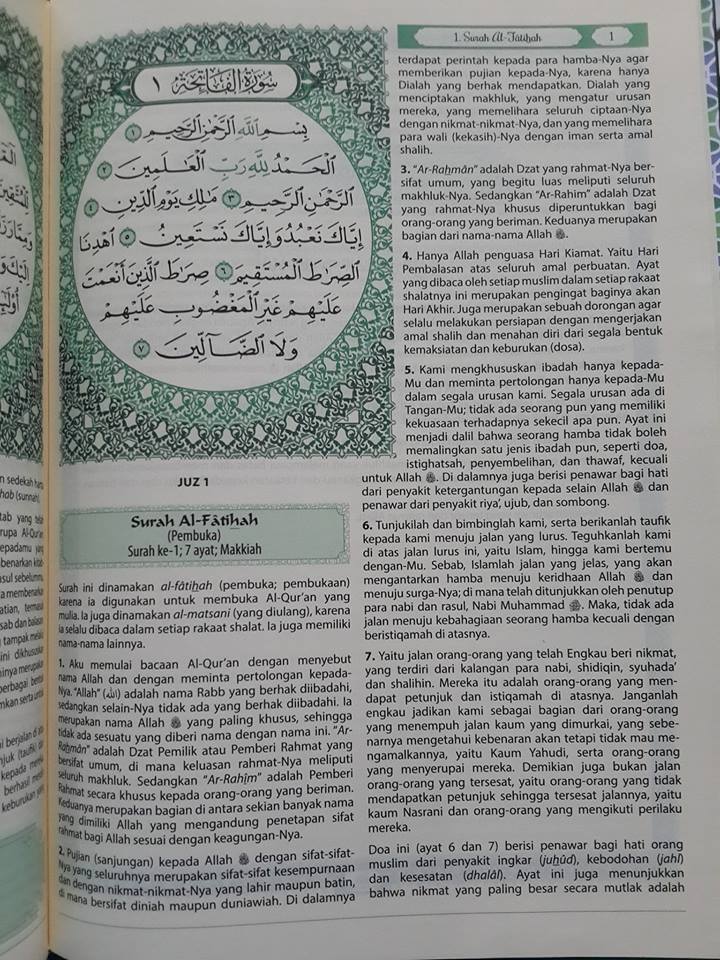 1. Surah Al-Fâtiḫah
1
سورة الفاتحة ١
بِسْمِ اللَّهِ الرَّحْمَٰنِ الرَّحِيمِ ١
الْحَمْدُ لِلَّهِ رَبِّ الْعَالَمِينَ ٢
الرَّحْمَٰنِ الرَّحِيمِ ٣ مَالِكِ يَوْمِ الدِّينِ ٤
إِيَّاكَ نَعْبُدُ وَإِيَّاكَ نَسْتَعِينُ ٥ اهْدِنَا
الصِّرَاطَ الْمُسْتَقِيمَ ٦ صِرَاطَ الَّذِينَ أَنْعَمْتَ
عَلَيْهِمْ غَيْرِ الْمَغْضُوبِ عَلَيْهِمْ
وَلَا الضَّالِّينَ ٧
JUZ 1
Surah Al-Fâtiḫah
(Pembuka)
Surah ke-1; 7 ayat; Makkiah
Surah ini dinamakan al-fâtiḫah (pembuka; pembukaan)
karena ia digunakan untuk membuka Al-Qur'an yang
mulia. Ia juga dinamakan al-matsani (yang diulang), karena
ia selalu dibaca dalam setiap rakaat shalat. Ia juga memiliki
nama-nama lainnya.
1. Aku memulai bacaan Al-Qur'an dengan menyebut
nama Allah dan dengan meminta pertolongan kepada-
Nya. "Allah" (الله) adalah nama Rabb yang berhak diibadahi,
sedangkan selain-Nya tidak ada yang berhak diibadahi. Ia
merupakan nama Allah ﷻ yang paling khusus, sehingga
tidak ada sesuatu yang diberi nama dengan nama ini. "Ar-
Raḫmân" adalah Dzat Pemilik atau Pemberi Rahmat yang
bersifat umum, di mana keluasan rahmat-Nya meliputi
seluruh makhluk. Sedangkan "Ar-Raḫîm" adalah Pemberi
Rahmat secara khusus kepada orang-orang yang beriman.
Keduanya merupakan bagian di antara sekian banyak nama
yang dimiliki Allah yang mengandung penetapan sifat
rahmat bagi Allah sesuai dengan keagungan-Nya.
2. Pujian (sanjungan) kepada Allah ﷻ dengan sifat-sifat-
Nya yang seluruhnya merupakan sifat-sifat kesempurnaan
dan dengan nikmat-nikmat-Nya yang lahir maupun batin,
di mana bersifat diniah maupun duniawiah. Di dalamnya
terdapat perintah kepada para hamba-Nya agar
memberikan pujian kepada-Nya, karena hanya
Dialah yang berhak mendapatkan. Dialah yang
menciptakan makhluk, yang mengatur urusan
mereka, yang memelihara seluruh ciptaan-Nya
dengan nikmat-nikmat-Nya, dan yang memelihara
para wali (kekasih)-Nya dengan iman serta amal
shalih.
3. "Ar-Raḫmân" adalah Dzat yang rahmat-Nya ber-
sifat umum, yang begitu luas meliputi seluruh
makhluk-Nya. Sedangkan "Ar-Rahim" adalah Dzat
yang rahmat-Nya khusus diperuntukkan bagi
orang-orang yang beriman. Keduanya merupakan
bagian dari nama-nama Allah ﷻ.
4. Hanya Allah penguasa Hari Kiamat. Yaitu Hari
Pembalasan atas seluruh amal perbuatan. Ayat
yang dibaca oleh setiap muslim dalam setiap rakaat
shalatnya ini merupakan pengingat baginya akan
Hari Akhir. Juga merupakan sebuah dorongan agar
selalu melakukan persiapan dengan mengerjakan
amal shalih dan menahan diri dari segala bentuk
kemaksiatan dan keburukan (dosa).
5. Kami mengkhususkan ibadah hanya kepada-
Mu dan meminta pertolongan hanya kepada-Mu
dalam segala urusan kami. Segala urusan ada di
Tangan-Mu; tidak ada seorang pun yang memiliki
kekuasaan terhadapnya sekecil apa pun. Ayat ini
menjadi dalil bahwa seorang hamba tidak boleh
memalingkan satu jenis ibadah pun, seperti doa,
istighatsah, penyembelihan, dan thawaf, kecuali
untuk Allah ﷻ. Di dalamnya juga berisi penawar bagi hati
dari penyakit ketergantungan kepada selain Allah ﷻ dan
penawar dari penyakit riya', ujub, dan sombong.
6. Tunjukilah dan bimbinglah kami, serta berikanlah taufik
kepada kami menuju jalan yang lurus. Teguhkanlah kami
di atas jalan lurus ini, yaitu Islam, hingga kami bertemu
dengan-Mu. Sebab, Islamlah jalan yang jelas, yang akan
mengantarkan hamba menuju keridhaan Allah ﷻ dan
menuju surga-Nya; di mana telah ditunjukkan oleh penutup
para nabi dan rasul, Nabi Muhammad ﷺ. Maka, tidak ada
jalan menuju kebahagiaan seorang hamba kecuali dengan
beristiqamah di atasnya.
7. Yaitu jalan orang-orang yang telah Engkau beri nikmat,
yang terdiri dari kalangan para nabi, shidiqin, syuhada'
dan shalihin. Mereka itu adalah orang-orang yang men-
dapat petunjuk dan istiqamah di atasnya. Janganlah
engkau jadikan kami sebagai bagian dari orang-orang
yang menempuh jalan kaum yang dimurkai, yang sebe-
narnya mengetahui kebenaran akan tetapi tidak mau me-
ngamalkannya, yaitu Kaum Yahudi, serta orang-orang
yang menyerupai mereka. Demikian juga bukan jalan
orang-orang yang tersesat, yaitu orang-orang yang tidak
mendapatkan petunjuk sehingga tersesat jalannya, yaitu
kaum Nasrani dan orang-orang yang mengikuti perilaku
mereka.
Doa ini (ayat 6 dan 7) berisi penawar bagi hati orang
muslim dari penyakit ingkar (juḫûd), kebodohan (jahl)
dan kesesatan (dhalâl). Ayat ini juga menunjukkan
bahwa nikmat yang paling besar secara mutlak adalah